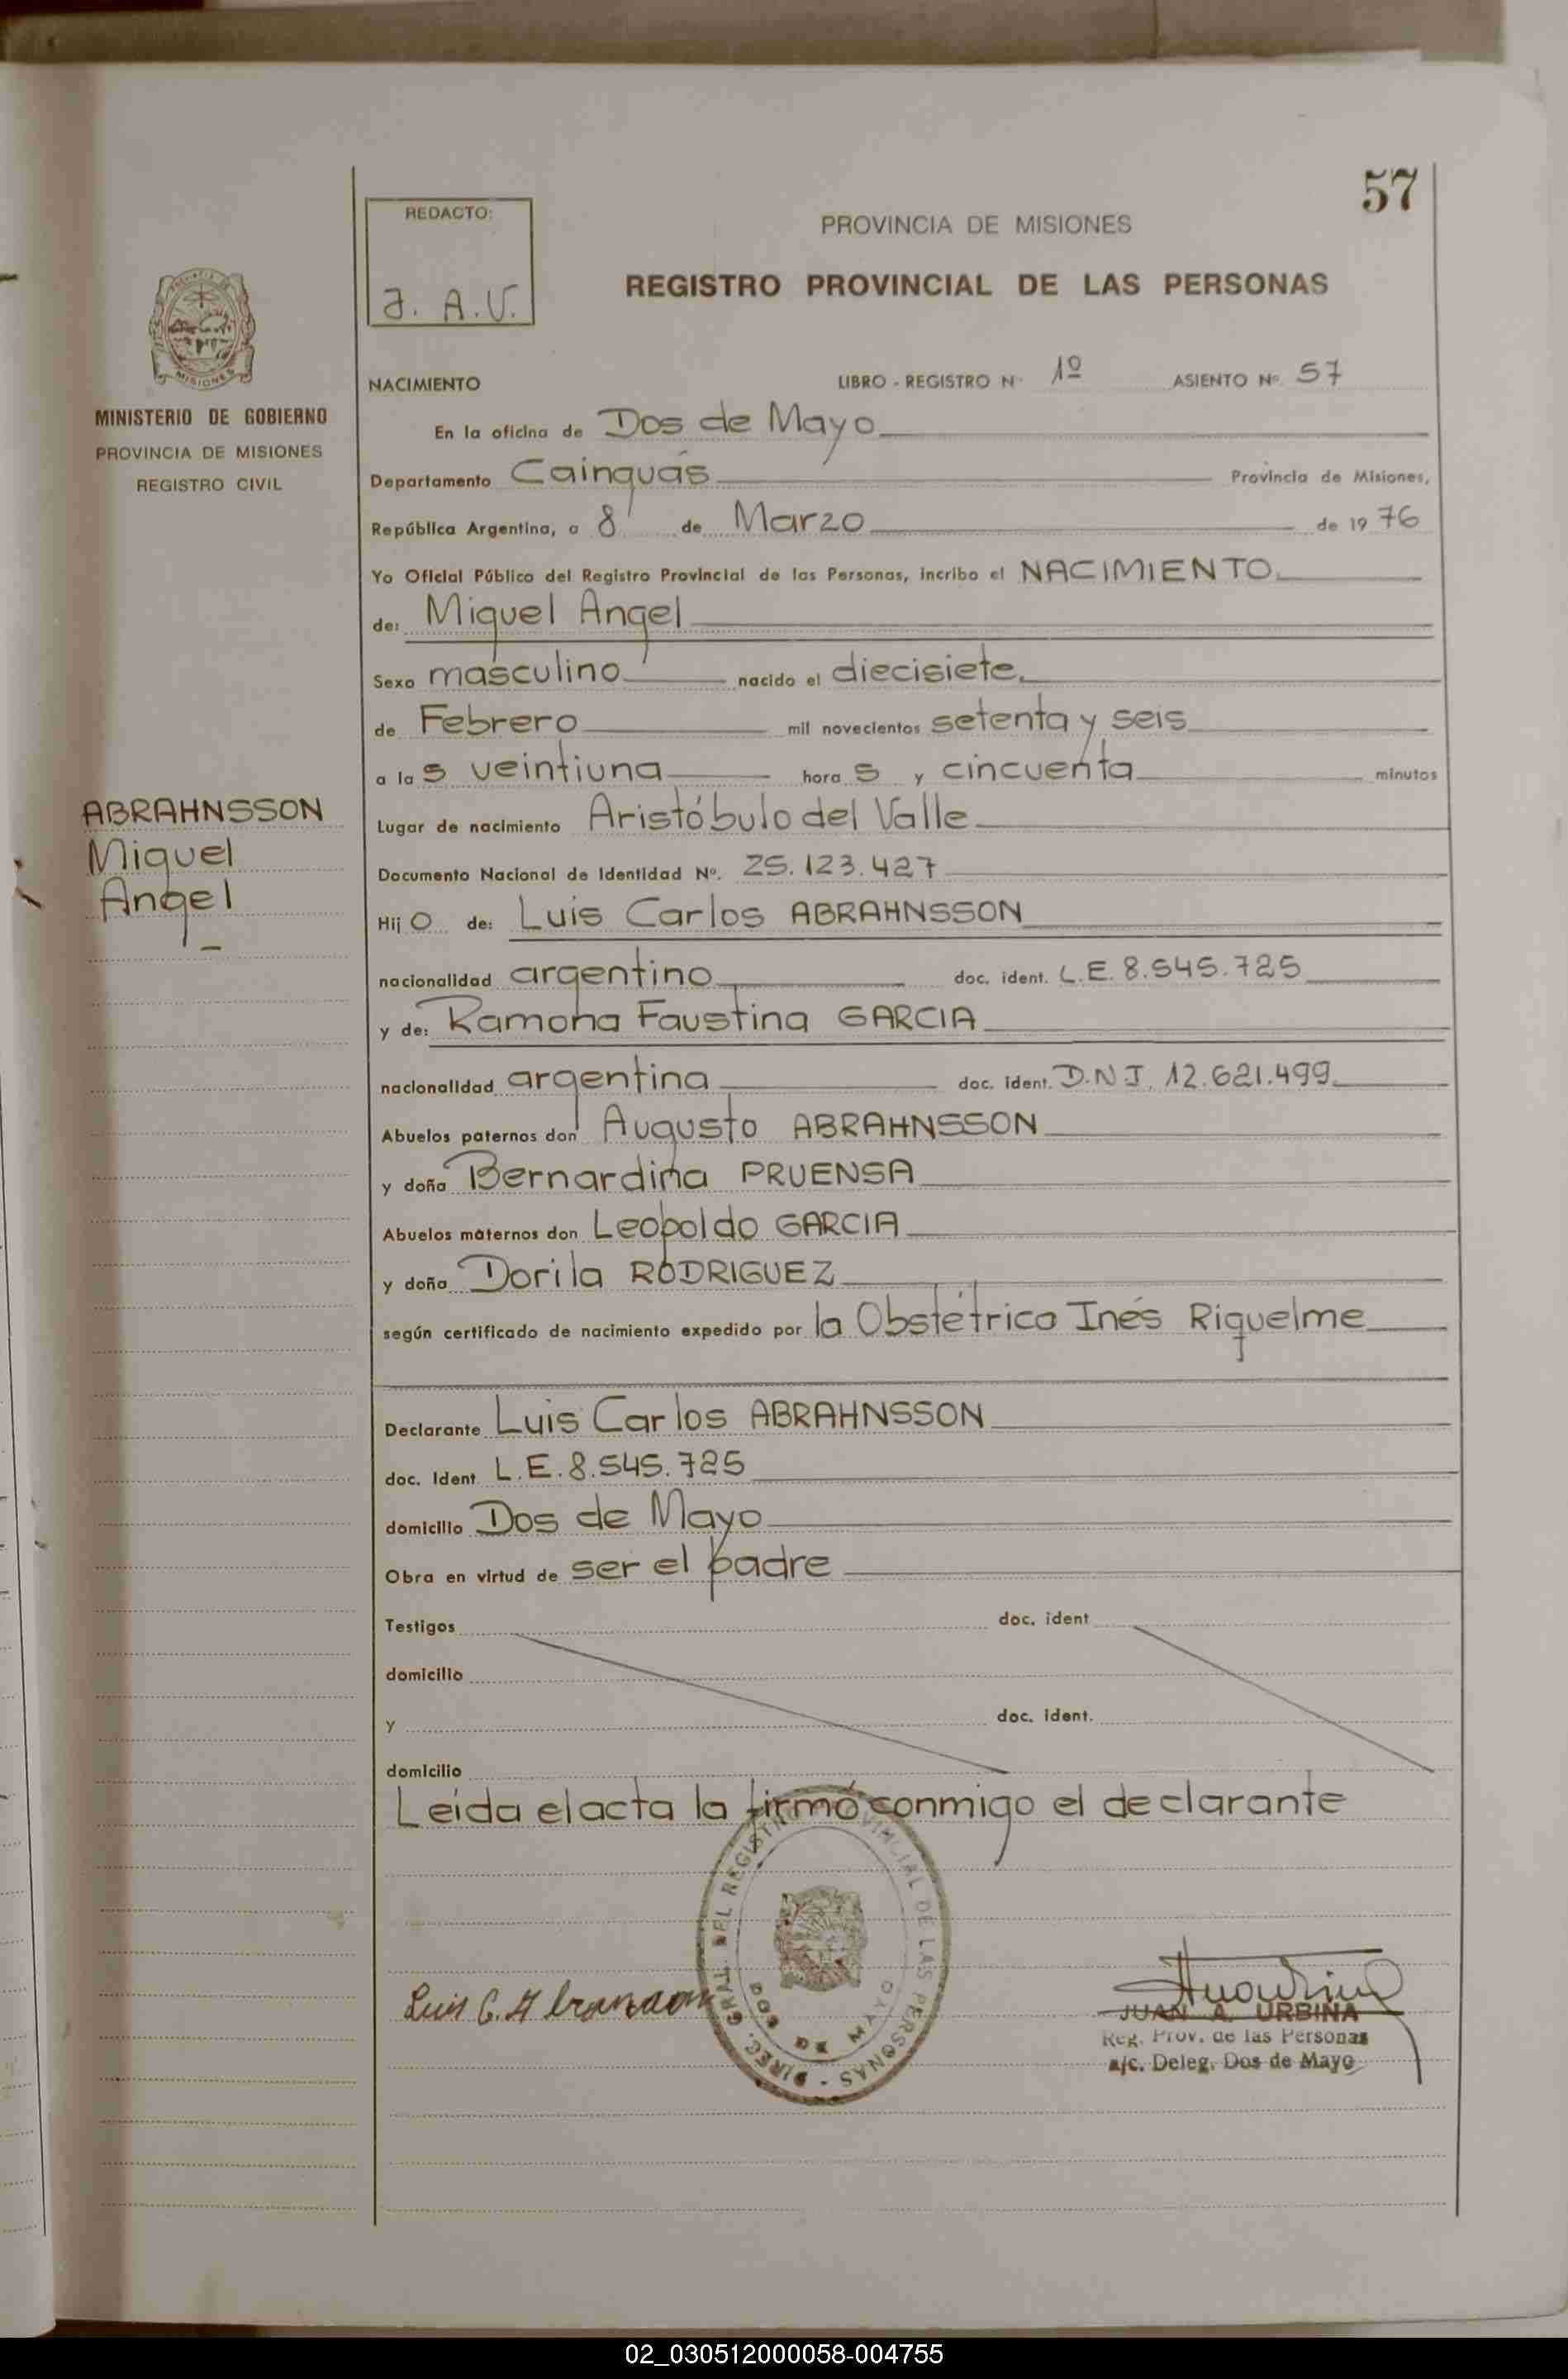 57
REDACTO:
J. A. U.
PROVINCIA DE MISIONES
REGISTRO PROVINCIAL DE LAS PERSONAS
MISIONES
MINISTERIO DE GOBIERNO
PROVINCIA DE MISIONES
REGISTRO CIVIL
NACIMIENTO LIBRO - REGISTRO Nº 1º ASIENTO Nº 57
En la oficina de Dos de Mayo
Departamento Cainguás Provincia de Misiones,
República Argentina, a 8 de Marzo de 1976
Yo Oficial Público del Registro Provincial de las Personas, incribo el NACIMIENTO
de: Miguel Angel
Sexo masculino nacido el diecisiete
de Febrero mil novecientos setenta y seis
a las veintiuna horas y cincuenta minutos
ABRAHNSSON
Miguel
Angel
Lugar de nacimiento Aristóbulo del Valle
Documento Nacional de Identidad Nº. 25.123.427
Hijo de: Luis Carlos ABRAHNSSON
nacionalidad argentino doc. ident. L.E. 8.545.725
y de: Ramona Faustina GARCIA
nacionalidad argentina doc. ident. D.N.I. 12.621.499
Abuelos paternos don Augusto ABRAHNSSON
y doña Bernardina PRUENSA
Abuelos maternos don Leopoldo GARCIA
y doña Dorila RODRIGUEZ
según certificado de nacimiento expedido por la Obstétrica Inés Riquelme
Declarante Luis Carlos ABRAHNSSON
doc. Ident. L.E. 8.545.725
domicilio Dos de Mayo
Obra en virtud de ser el padre
Testigos doc. ident
domicilio
y doc. ident.
domicilio
Leída el acta la firmó conmigo el declarante
DIREC. GRAL. DEL REGISTRO PROVINCIAL DE LAS PERSONAS -
DOS DE MAYO
Luis C. Abranson
JUAN A. URBINA
Reg. Prov. de las Personas
a/c. Deleg. Dos de Mayo
02_030512000058-004755